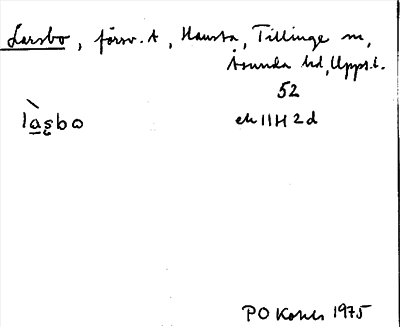 Larsbo, försv. t, Hansta, Tillinge sn,
Åsunda hd, Upps. l.
52
làsbo ek 11H 2d
PO Kohls 1975